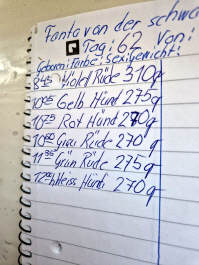 Fanta von der schwa
Tag: 62 Von:
Geboren: Farbe: Sex: Gewicht:
8:45 Violet Rüde 310g
10:05 Gelb Hünd 275g
10:25 Rot Hünd 270g
10:50 Grau Rüde 270g
11:35 Grün Rüde 275g
12:00 Weiss Hündi 270g